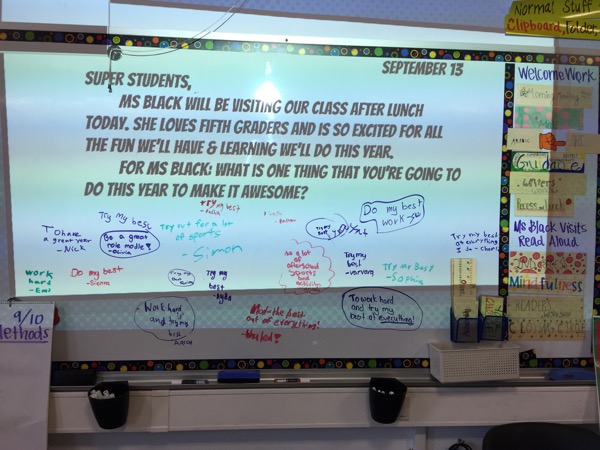 Normal Stuff
Clipboard, Folder,
SEPTEMBER 13
SUPER STUDENTS,
MS BLACK WILL BE VISITING OUR CLASS AFTER LUNCH
TODAY. SHE LOVES FIFTH GRADERS AND IS SO EXCITED FOR ALL
THE FUN WE'LL HAVE & LEARNING WE'LL DO THIS YEAR.
FOR MS BLACK: WHAT IS ONE THING THAT YOU'RE GOING TO
DO THIS YEAR TO MAKE IT AWESOME?
Try my best
Do my best
work
Try my best
Try out for a lot
of sports
- Simon
To have
a great year
- Nick
Be a great
role model!
Try my
best
Be a lot
of afterschool
sports
and
activities
Try my
best
Try My Best
- Sophia
Try my best
at everything
I do
work
hard
- Em
Do my best
- Sienna
Try my
best
Work hard
and try my
best
out of everything!
To work hard
and try my
best at everything!
9/10
Methods
Welcome Work
Morning Meeting
Guidance
Recess and Lunch
Ms Black Visits
Read Aloud
Mindfulness
READERS